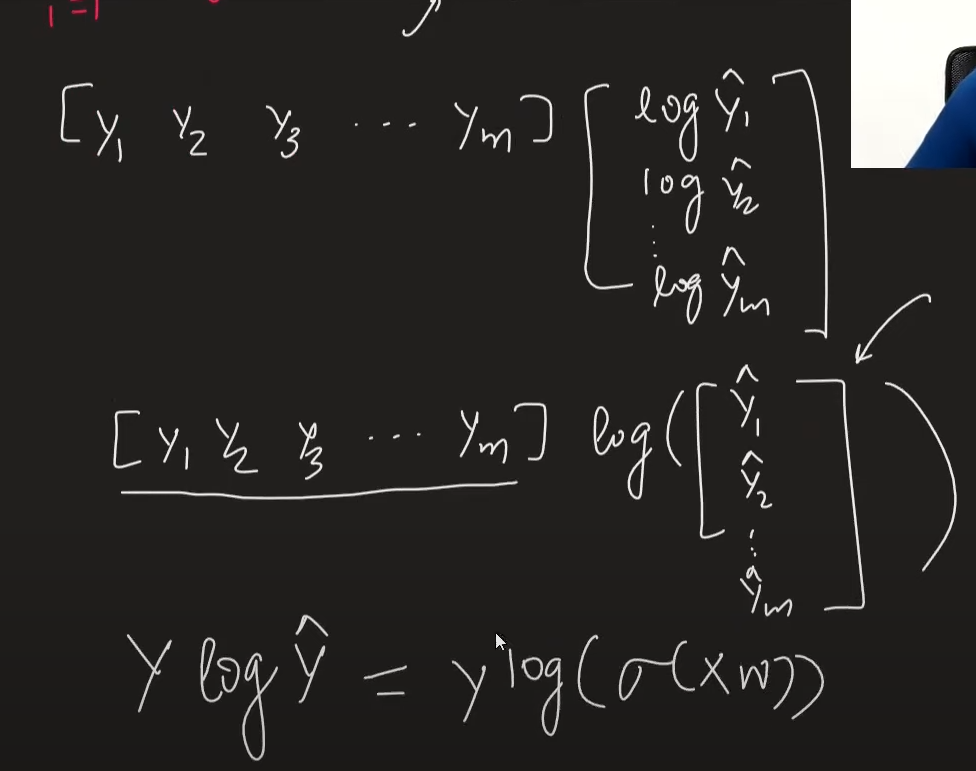 i=1
[y₁ y₂ y₃ ... yₘ] [log ŷ₁
log ŷ₂
⋮
log ŷₘ]
[y₁ y₂ y₃ ... yₘ] log([ŷ₁
ŷ₂
⋮
ŷₘ])
Y log Ŷ = y log(σ(XW))